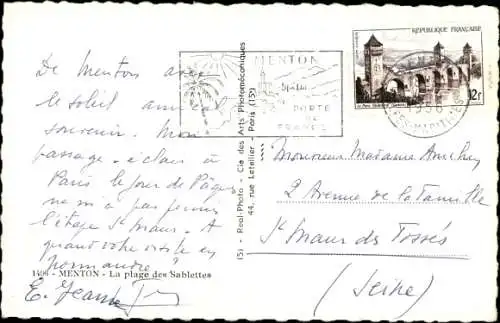 De Menton avec
le soleil amical
souvenir. Mon
passage - éclair à
Paris le jour de Pâques
ne m'a pas permis
l'étape St Maur. A
quand votre visite en
Normandie?
E. Jeanne
1496 - MENTON - La plage des Sablettes
151 - Real-Photo - Cie des Arts Photomécaniques
44, rue Letellier - Paris (15e)
MENTON
PORTE
DE
FRANCE
RÉPUBLIQUE FRANÇAISE
12f
Monsieur Madame
2 Avenue de la Famille
St Maur des Fossés
(Seine)